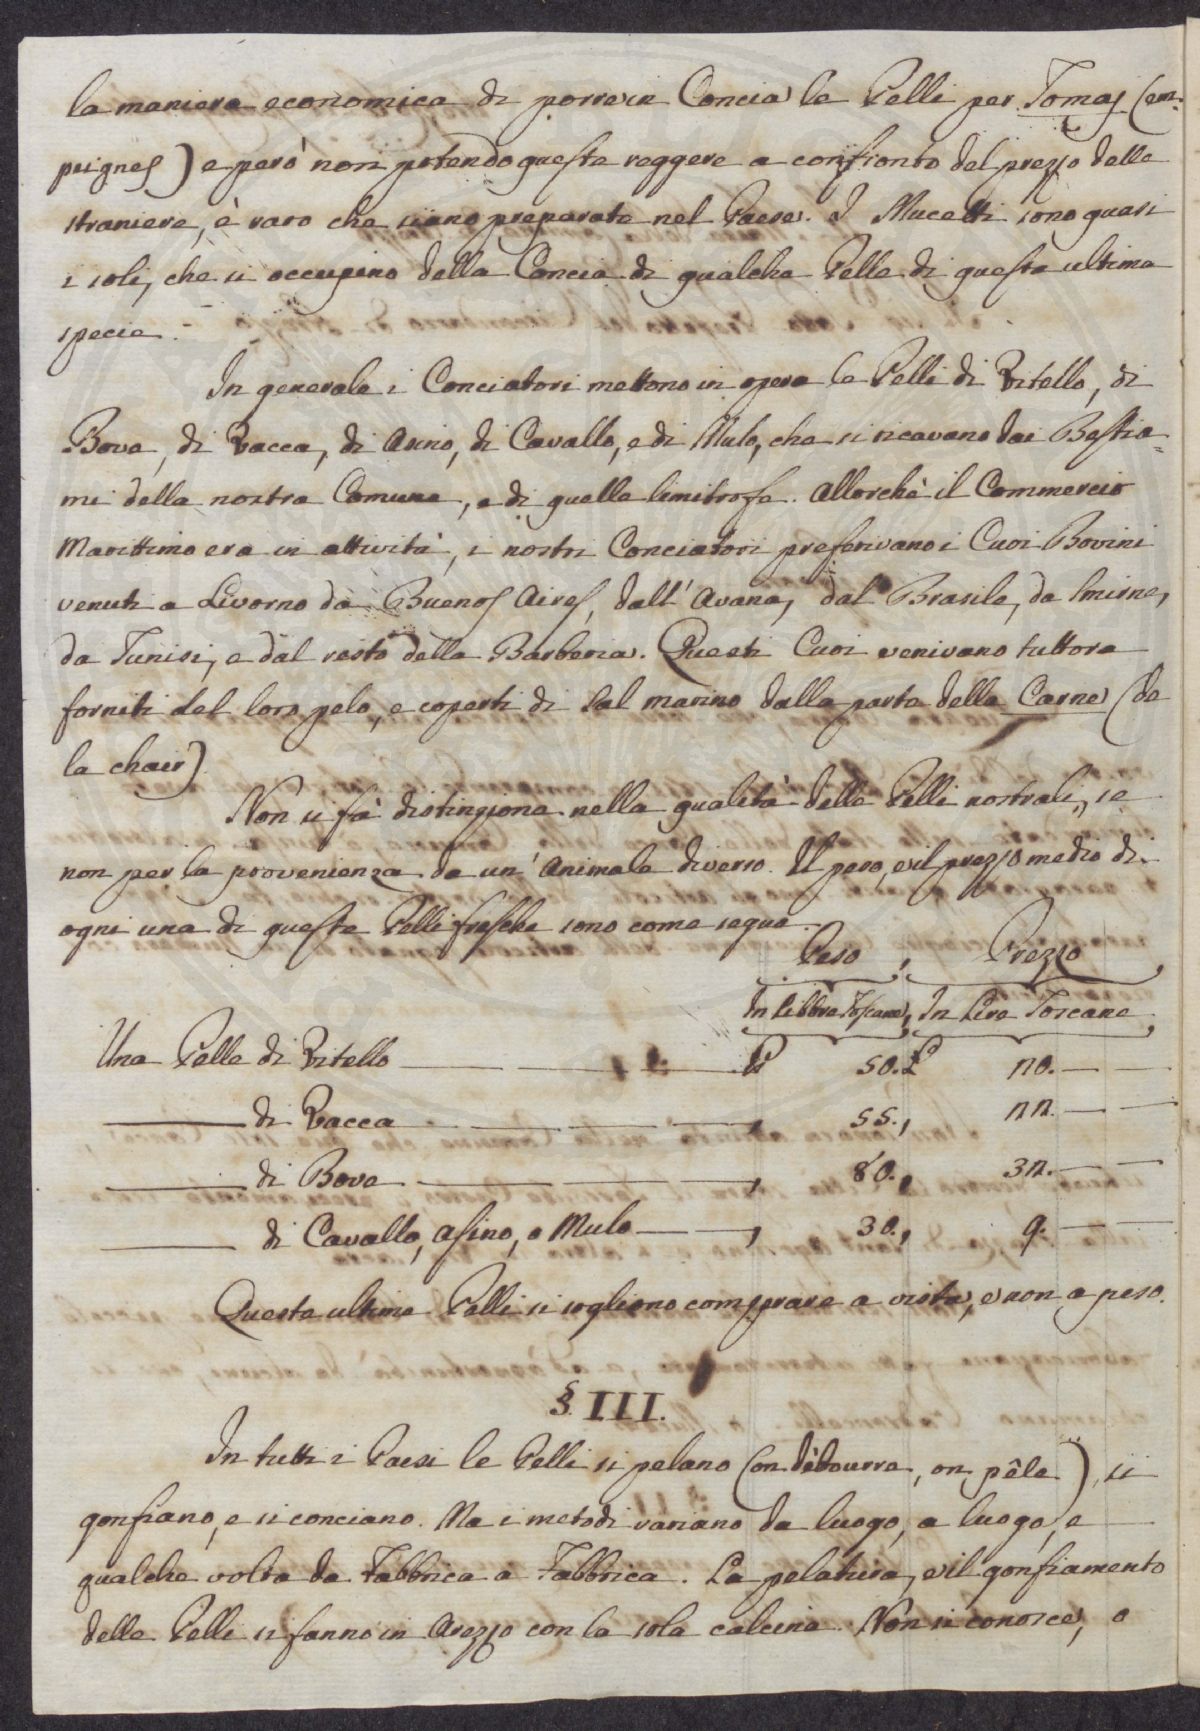 la maniera economica di porre in Concia le Pelli per Tomaj (em-
peignes) e però non potendo queste reggere a confronto del prezzo delle
straniere, è raro che siano preparate nel Paese. I Mucetti sono quasi
i soli, che si occupino della Concia di qualche Pelle di questa ultima
specie.
In generale i Conciatori mettono in opera le Pelli di Vitello, di
Bove, di Vacca, di Asino, di Cavallo, e di Mulo, che si ricavano dai Bestia=
mi della nostra Comune, e di quelle limitrofe. Allorchè il Commercio
Marittimo era in attività, i nostri Conciatori preferivano i Cuoi Bovini
venuti a Livorno da Buenos Aires, dall' Avana, dal Brasile, da Smirne,
da Tunisi, e dal resto della Barberia. Questi Cuoi venivano tuttora
forniti del loro pelo, e coperti di Sal marino dalla parte della Carne (de
la chair)
Non si fà distinzione nella qualità delle Pelli nostrali, se
non per la provenienza da un' Animale diverso. Il peso, e il prezzo medio di
ogni una di queste Pelli fresche sono come segue.
Peso, Prezzo
In Libbre Toscane, In Lire Toscane
Una Pelle di Vitello 50. £ 20.
di Vacca , 55., 22.
di Bove , 80., 32.
di Cavallo, Asino, o Mulo , 30., 9.
Queste ultime Pelli si sogliono comprare a vista, e non a peso.
§. III.
In tutti i Paesi le Pelli si pelano (on débourre, on pêle), si
gonfiano, e si conciano. Ma i metodi variano da luogo, a luogo, e
qualche volta da Fabbrica a Fabbrica. La pelatura, e il gonfiamento
delle Pelli si fanno in Arezzo con la sola calcina. Non si conosce, o